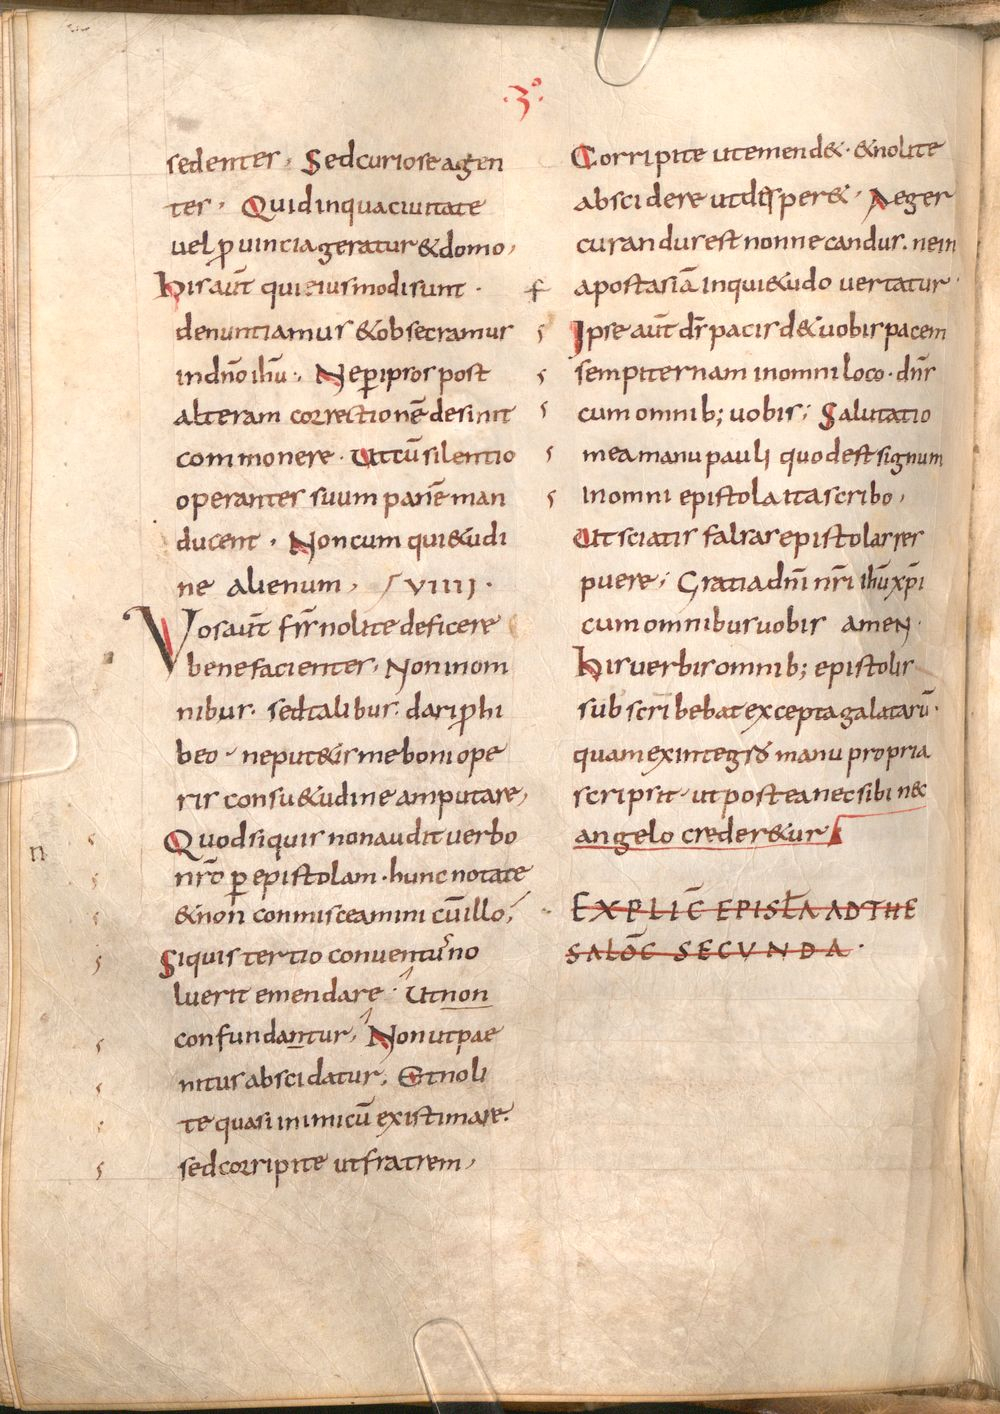 ·3°·
sedentes, Sed curiose agen
tes, Quid in qua ciuitate
uel ꝓuincia geratur & domo,
his aut̄ qui eiusmodi sunt ·
denuntiamus & obsecramus
in dn̄o ihū ·, Ne ꝑ ipsos post
alteram correctionē desinit
commonere · Ut cū silentio
operantes suum panē man
ducent · Non cum qui&udi
ne alienum, VIIII ·
Vos aut̄ fr̄s nolite deficere
benefacientes, Non in om
nibus· sed talibus· dari ꝓhi
beo · ne put&is me boni ope
ris consu&udine amputare,
Quod si quis non audit uerbo
nr̄o ꝑ epistolam · hunc notate
& non conmisceamini cū illo,
Si quis tertio conuentus no
luerit emendare · Ut non
confundantur, Non ut pae
nitus abscidatur, Et noli
te quasi inimicū existimare.
sed corripite ut fratrem,
Corripite ut emend& · & nolite
abscidere ut disper& · Aeger
curandus est non necandus. ne in
apostasiā inqui&udo uertatur ·
Ipse aut̄ dr̄ pacis d& uobis pacem
sempiternam in omni loco · dn̄s
cum omnib; uobis; Salutatio
mea manu pauli quod est signum
in omni epistola ita scribo,
Ut sciatis falsas epistolas res
puere; Gratia dn̄i nr̄i ihū xp̄i
cum omnibus uobis amen·
his uerbis omnib; epistolis
subscribebat excepta galatarū ·
quam ex integro manu propria
scripsit · ut postea nec sibi nec
angelo creder&ur
n
EXPLIC̄ EPISTL̄A AD THE
SALŌC SECUNDA ·